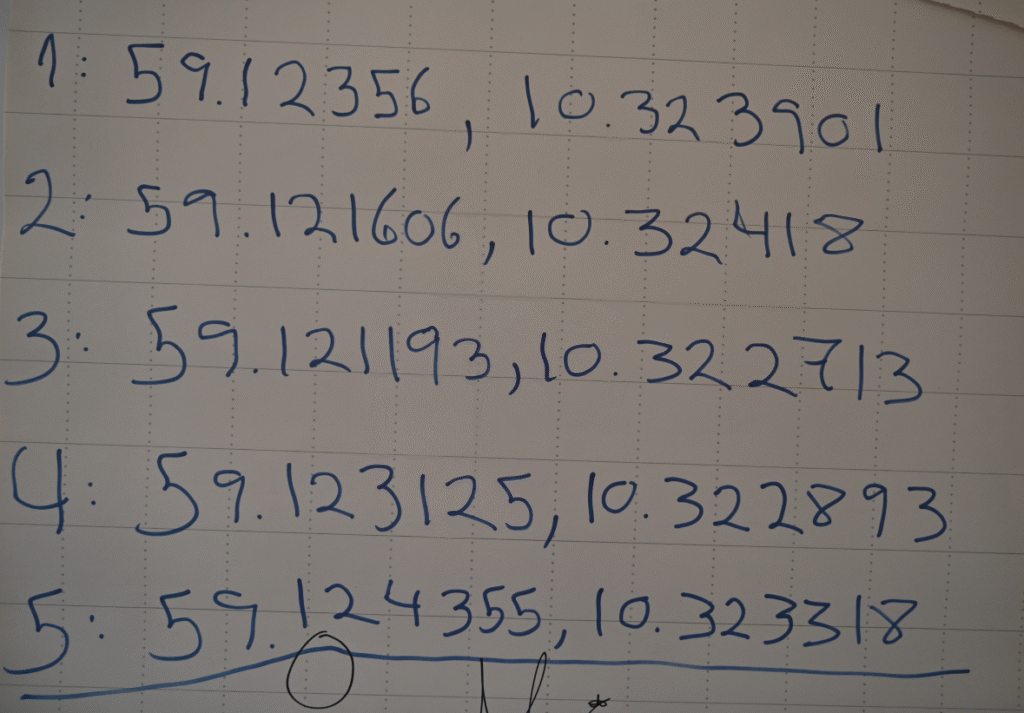 1: 59.12356, 10.323901
2: 59.121606, 10.32418
3: 59.121193, 10.322713
4: 59.123125, 10.322893
5: 59.124355, 10.323318